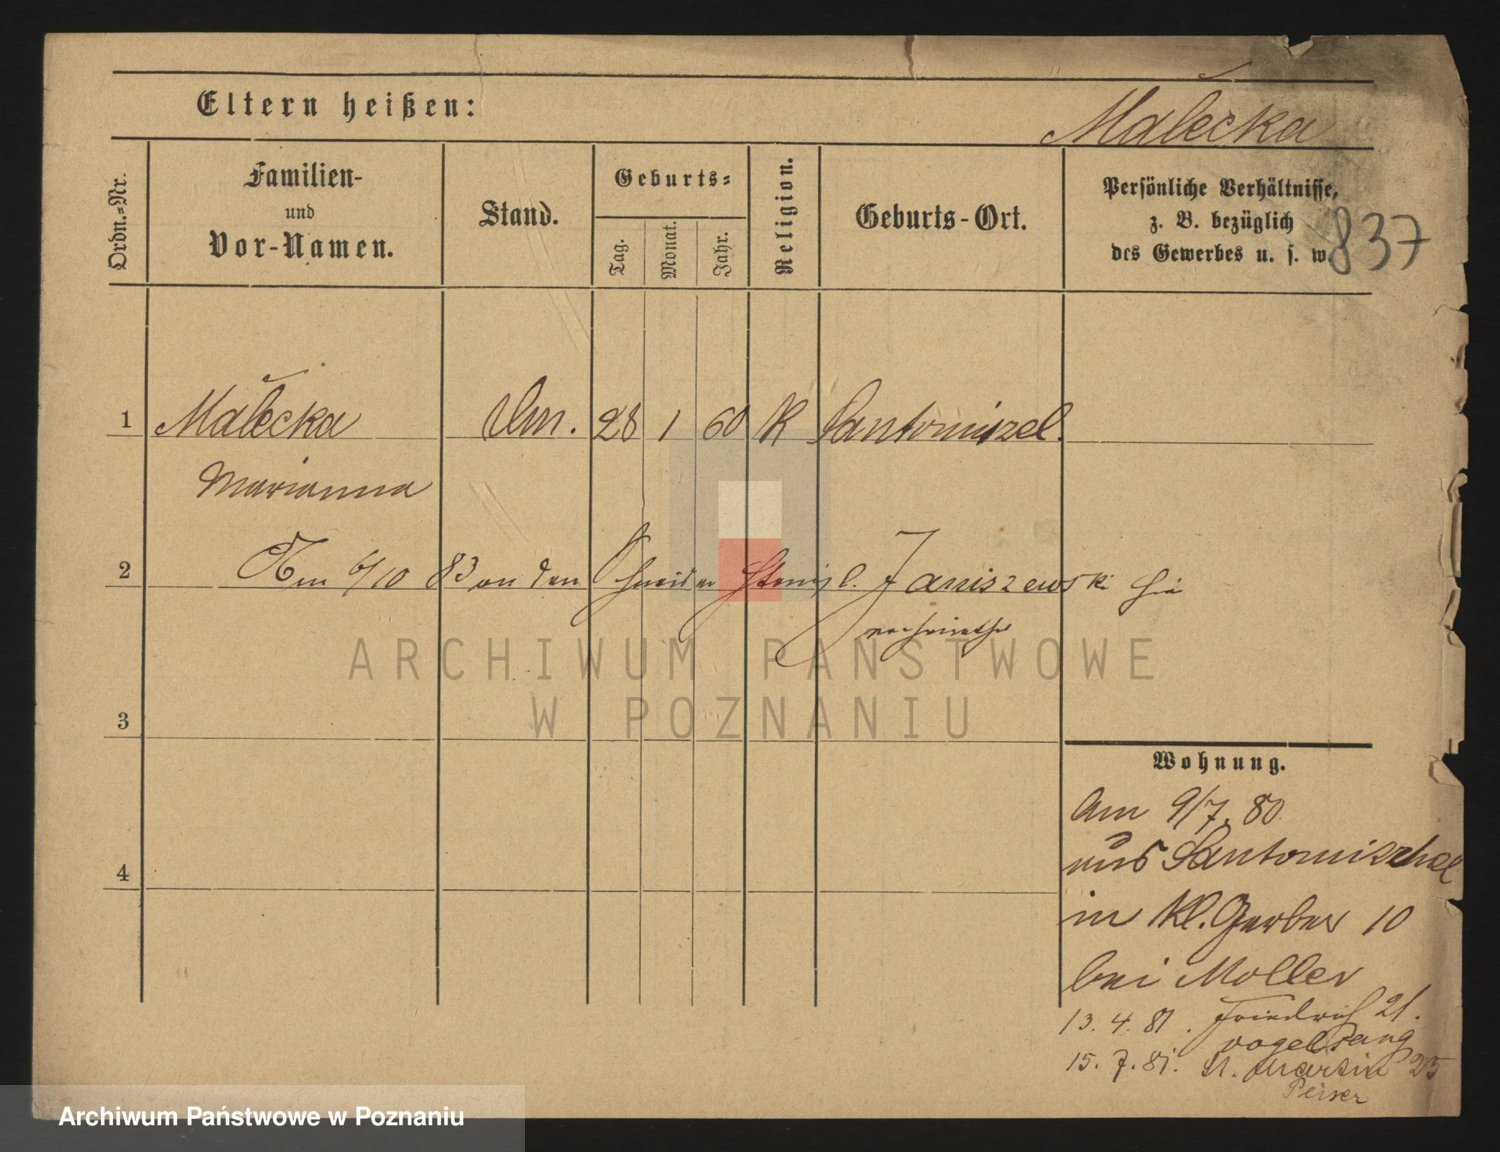 Eltern heißen:
Małecka
Ordn.-Nr.
Familien-
und
Vor-Namen.
Stand.
Geburts-
Tag.
Monat.
Jahr.
Religion.
Geburts-Ort.
Persönliche Verhältnisse,
z. B. bezüglich
des Gewerbes u. s. w.
837
1 Małecka 28 1 60 K Santomizel.
Marianna
2 Am 6/10 83 an den Schneider Stanisl. Janiszewski hie
verheirathet
ARCHIWUM PAŃSTWOWE
W POZNANIU
3
Wohnung.
Am 9/7. 80
4
aus Santomischel
in Kl. Gerber 10
bei Moller
13. 4. 81. Friedrich 21.
Vogelsang
15. 7. 81. St. Martin 25
Peiser
Archiwum Państwowe w Poznaniu